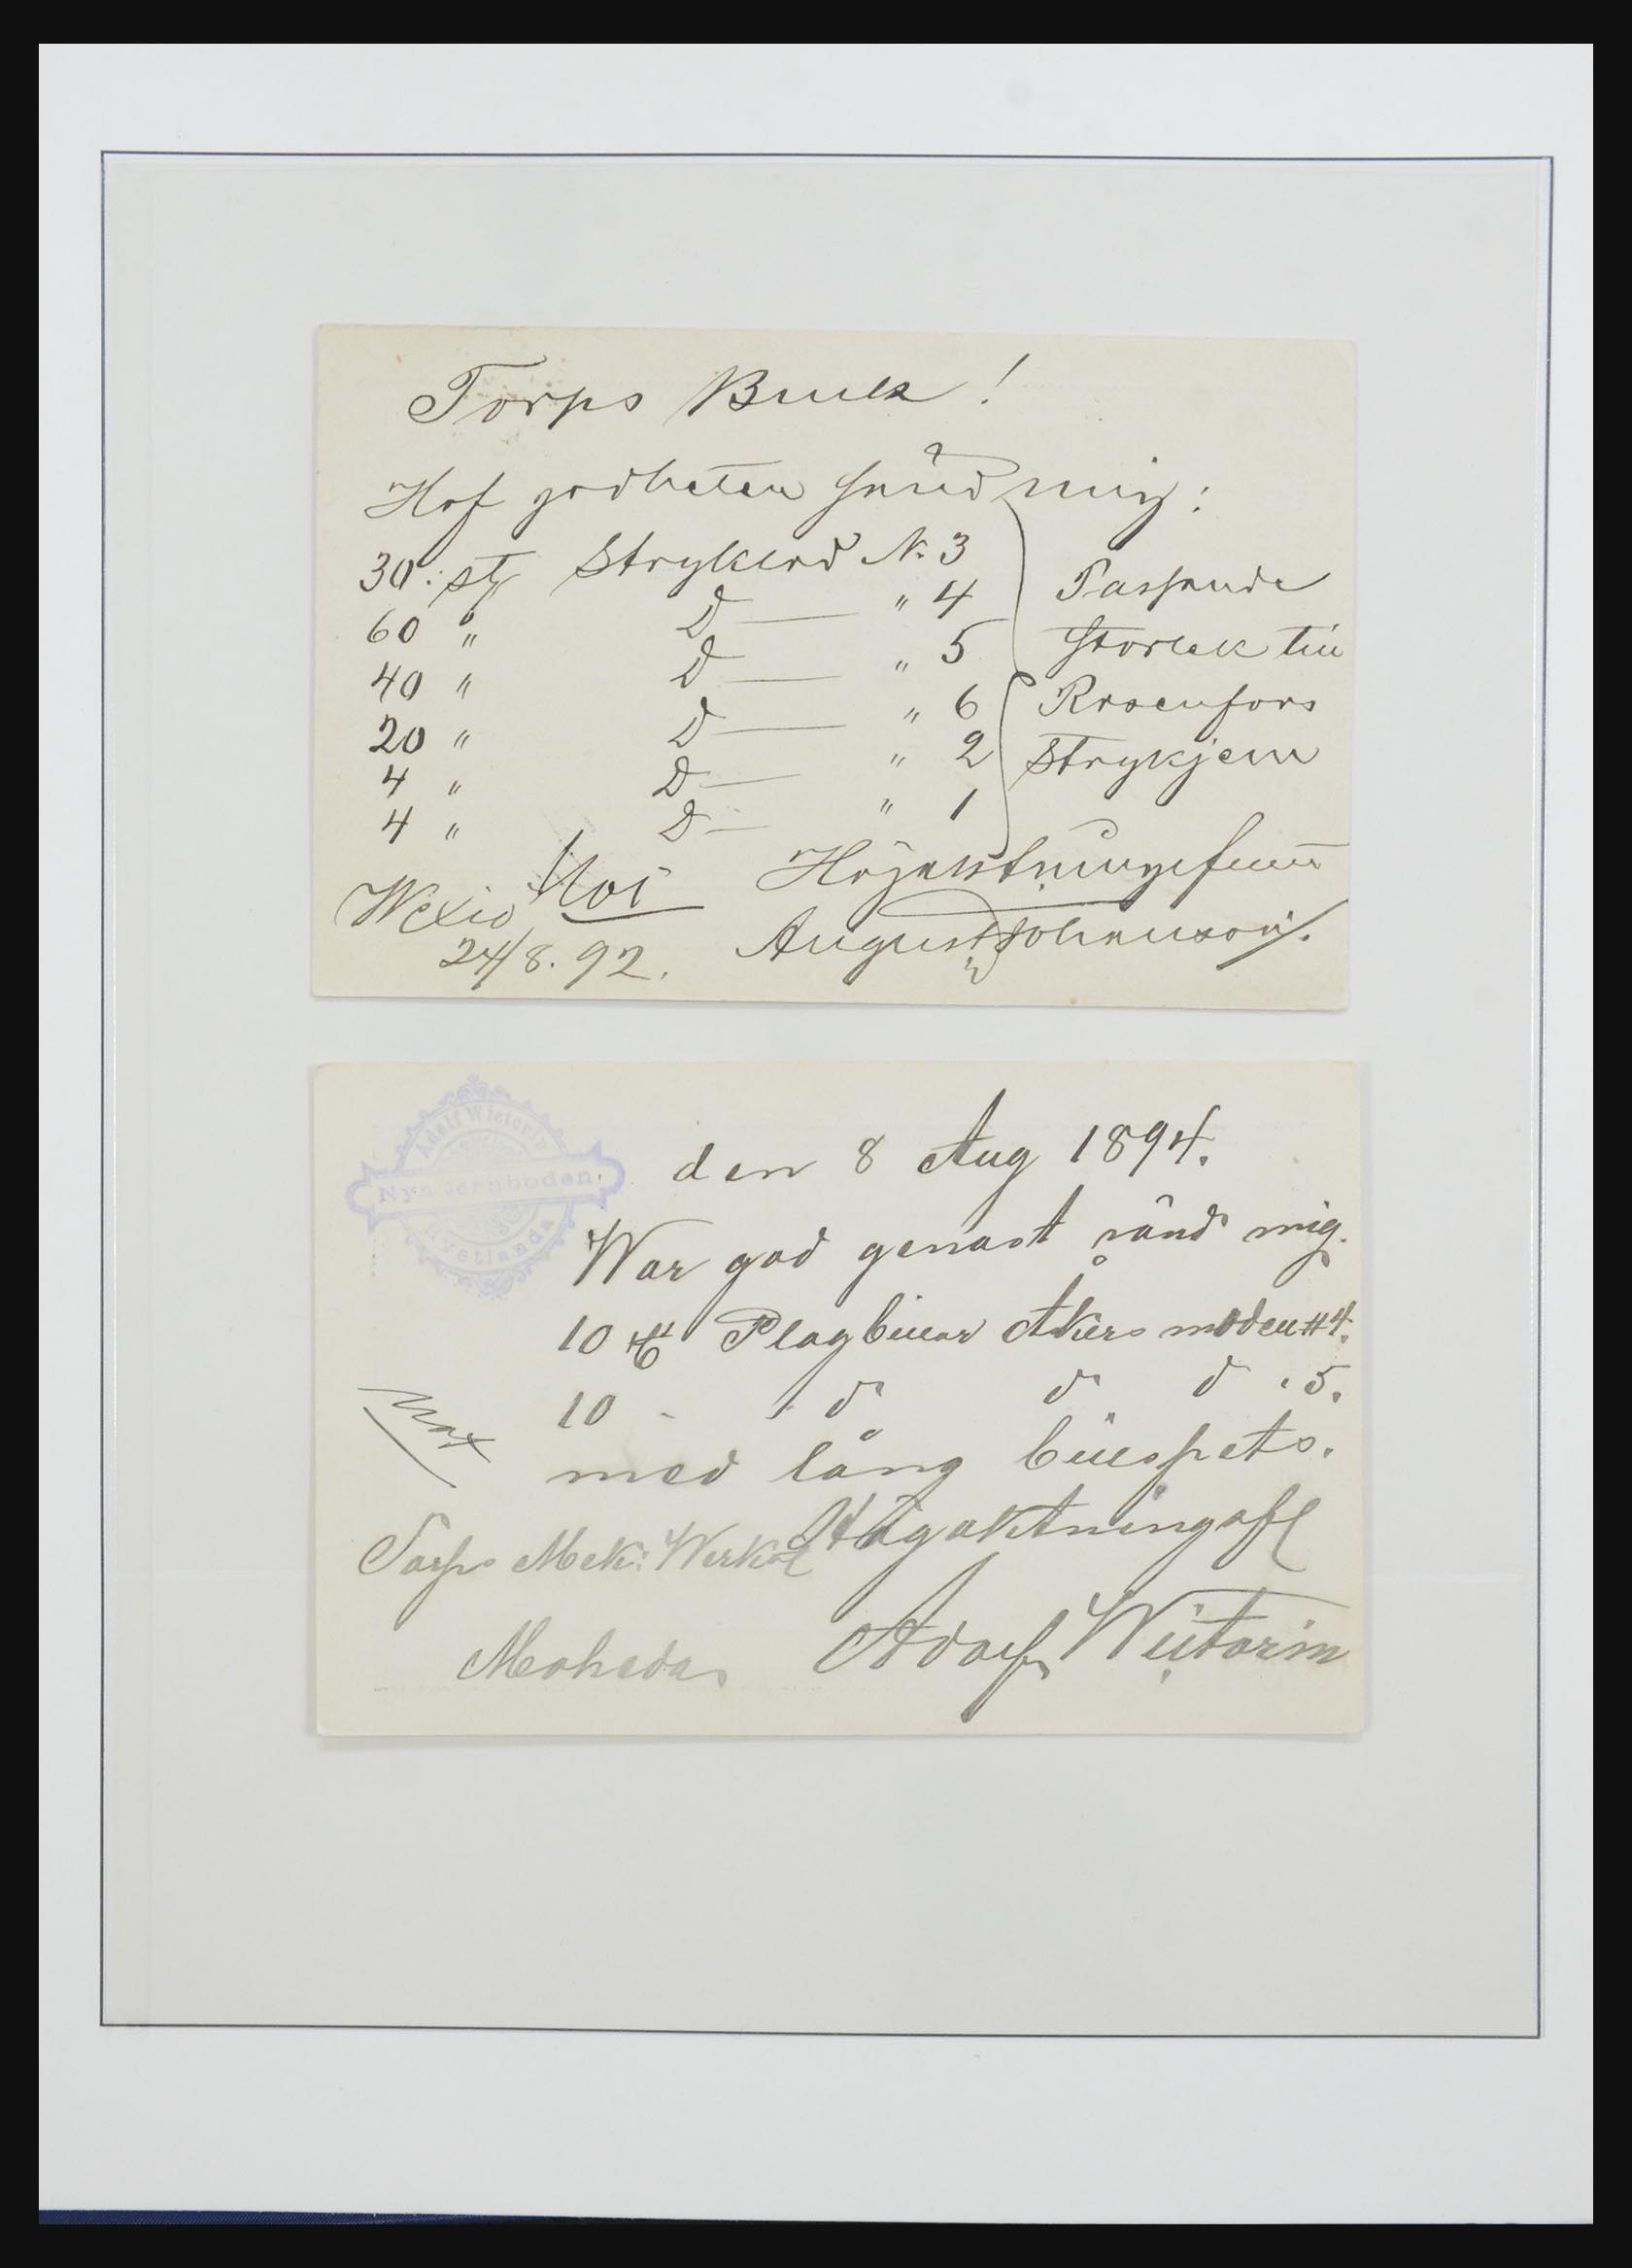 Torps Bruk!
Haf godheten sänd mig:
30: st Stryklod No 3
60 " D — " 4
40 " D — " 5
20 " D — " 6
4 " D — " 2
4 " D — " 1
Passande
storlek till
Rosenfors
Strykjern
Högaktningsfullt
August Johansson.
Wexiö
24/8. 92.
Adolf Wictorin
Nya Jernboden
Hvetlanda
den 8 Aug 1894.
War god genast sänd mig.
10 st Plogbillar Åkers modell # 4.
10 - d d d . 5.
med lång billspets.
Högaktningsfl
Torps Mek: Werkst
Adolf Wictorin
Moheda